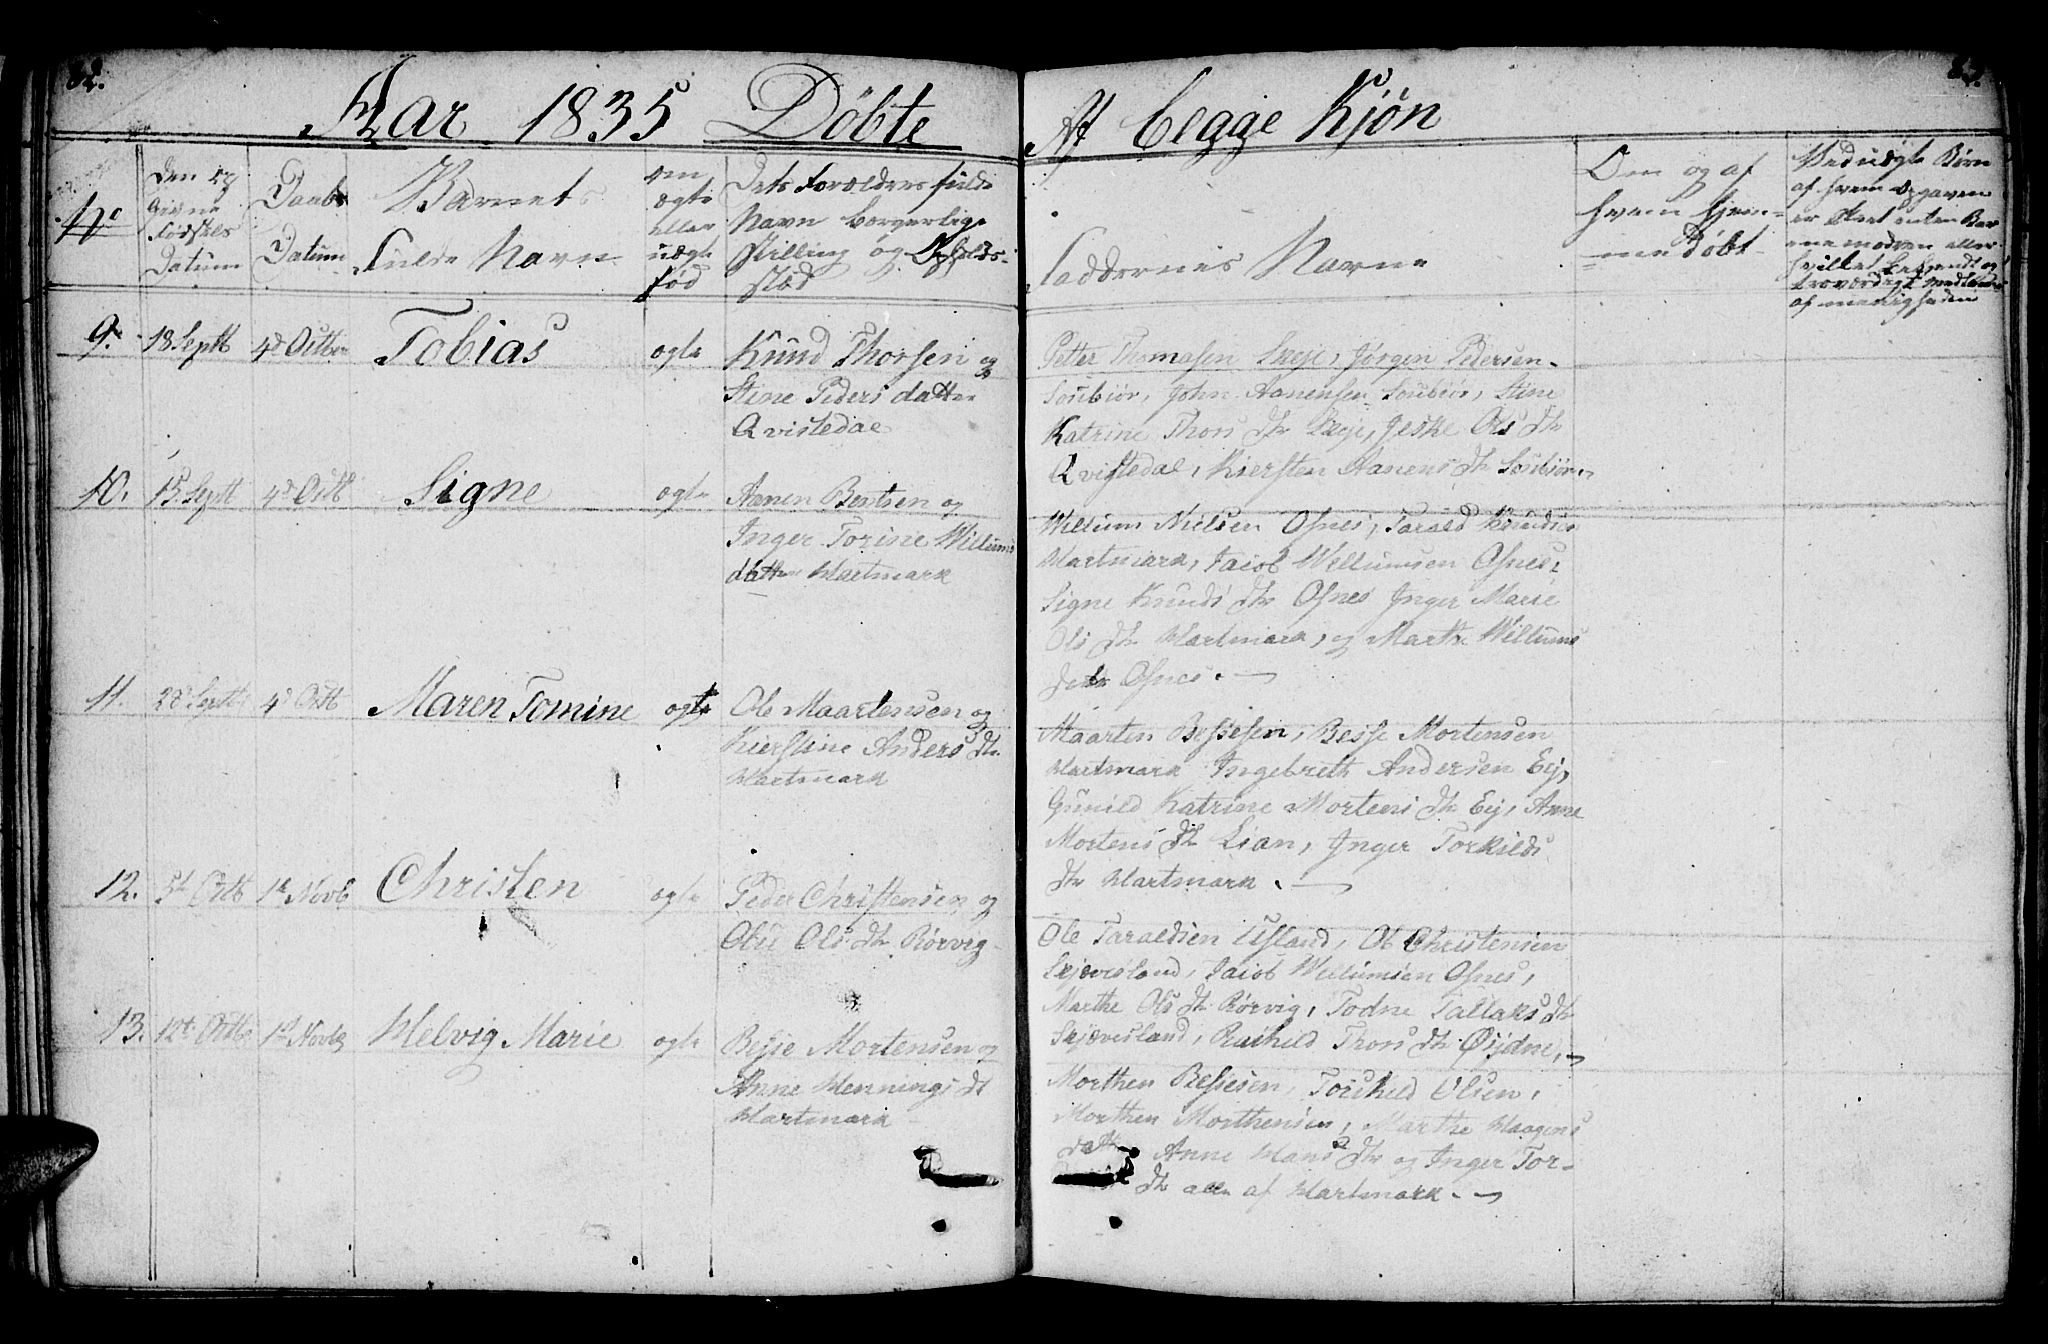 82.
Aar 1835 Døbte
Af begge Kjøn
No
Den op
Givne
Fødsels
Datum
Daabs
Datum
Barnets
fulde Navn
om
ægte
eller
uægte
fød
Dets Forældres fulde
Navn borgerlige
Stilling og Opholds-
stæd
Faddernes Navne
Om og af
hvem hjem-
me Døbt
Ved uægte Børn
af hvem Opgaven
er skeet enten Bar
nemodren eller
hvilket bekiendt og
troværdigt
af menigheden
9. 18 Septb 4d Octbr Tobias ogte Knud Thorsen og
Stine Peders datter
Qvistedae
Petter Thomasen Skeje, Jørgen Pedersen
Soubiør, John Aanensen Soubiør, Stine
Katrine Thors dtr Skeje, Jeske Ols dtr
Qvistedal, Kiersten Aanens dtr Soubiør
10. 15. Septb 4d Octb Signe ogte Aanen Bentsen og
Inger Torine Willums
datter Hartmark
Willum Nielsen Osnes, Tarald Knudsen
Hartmark, Jaiob Wellumsen Osnes,
Signe Knuds dtr Osnes Inger Marie
Ols dtr Hartmark, og Marth Willums
datr Osnes.
11. 28 Septb 4d Octb Maren Tomine ogte Ole Maartensen og
Kierstine Anders dtr
Hartmark
Maarten Bessesen, Besse Mortensen
Hartmark Ingebreth Andersen Eej,
Gunild Katrine Mortens dtr Eej, Anne
Mortens dtr Lian, Inger Torkilds
dtr Hartmark.
12. 5t Octb 1st Novb Christen ogte Peder Christensen og
Olu Ols dtr Rørvig
Ole Taraldsen Ufland, Ole Christensen
Skjævesland, Jaiob Wellumsen Osnes,
Marthe Ols dtr Rørvig, Todne Tallaks dtr
Skjævesland, Raghild Thors dtr Øijdne,
13. 12t Octb 1st Novbr Helvig Marie ogte Besse Mortensen og
Anne Hennings dt
Hartmark
Morthen Bessesen, Torkild Olsen,
Morthen Morthensen, Marthe Haagens
datt Anne Hans dtr og Inger Tor-
dtr alle af Hartmark.